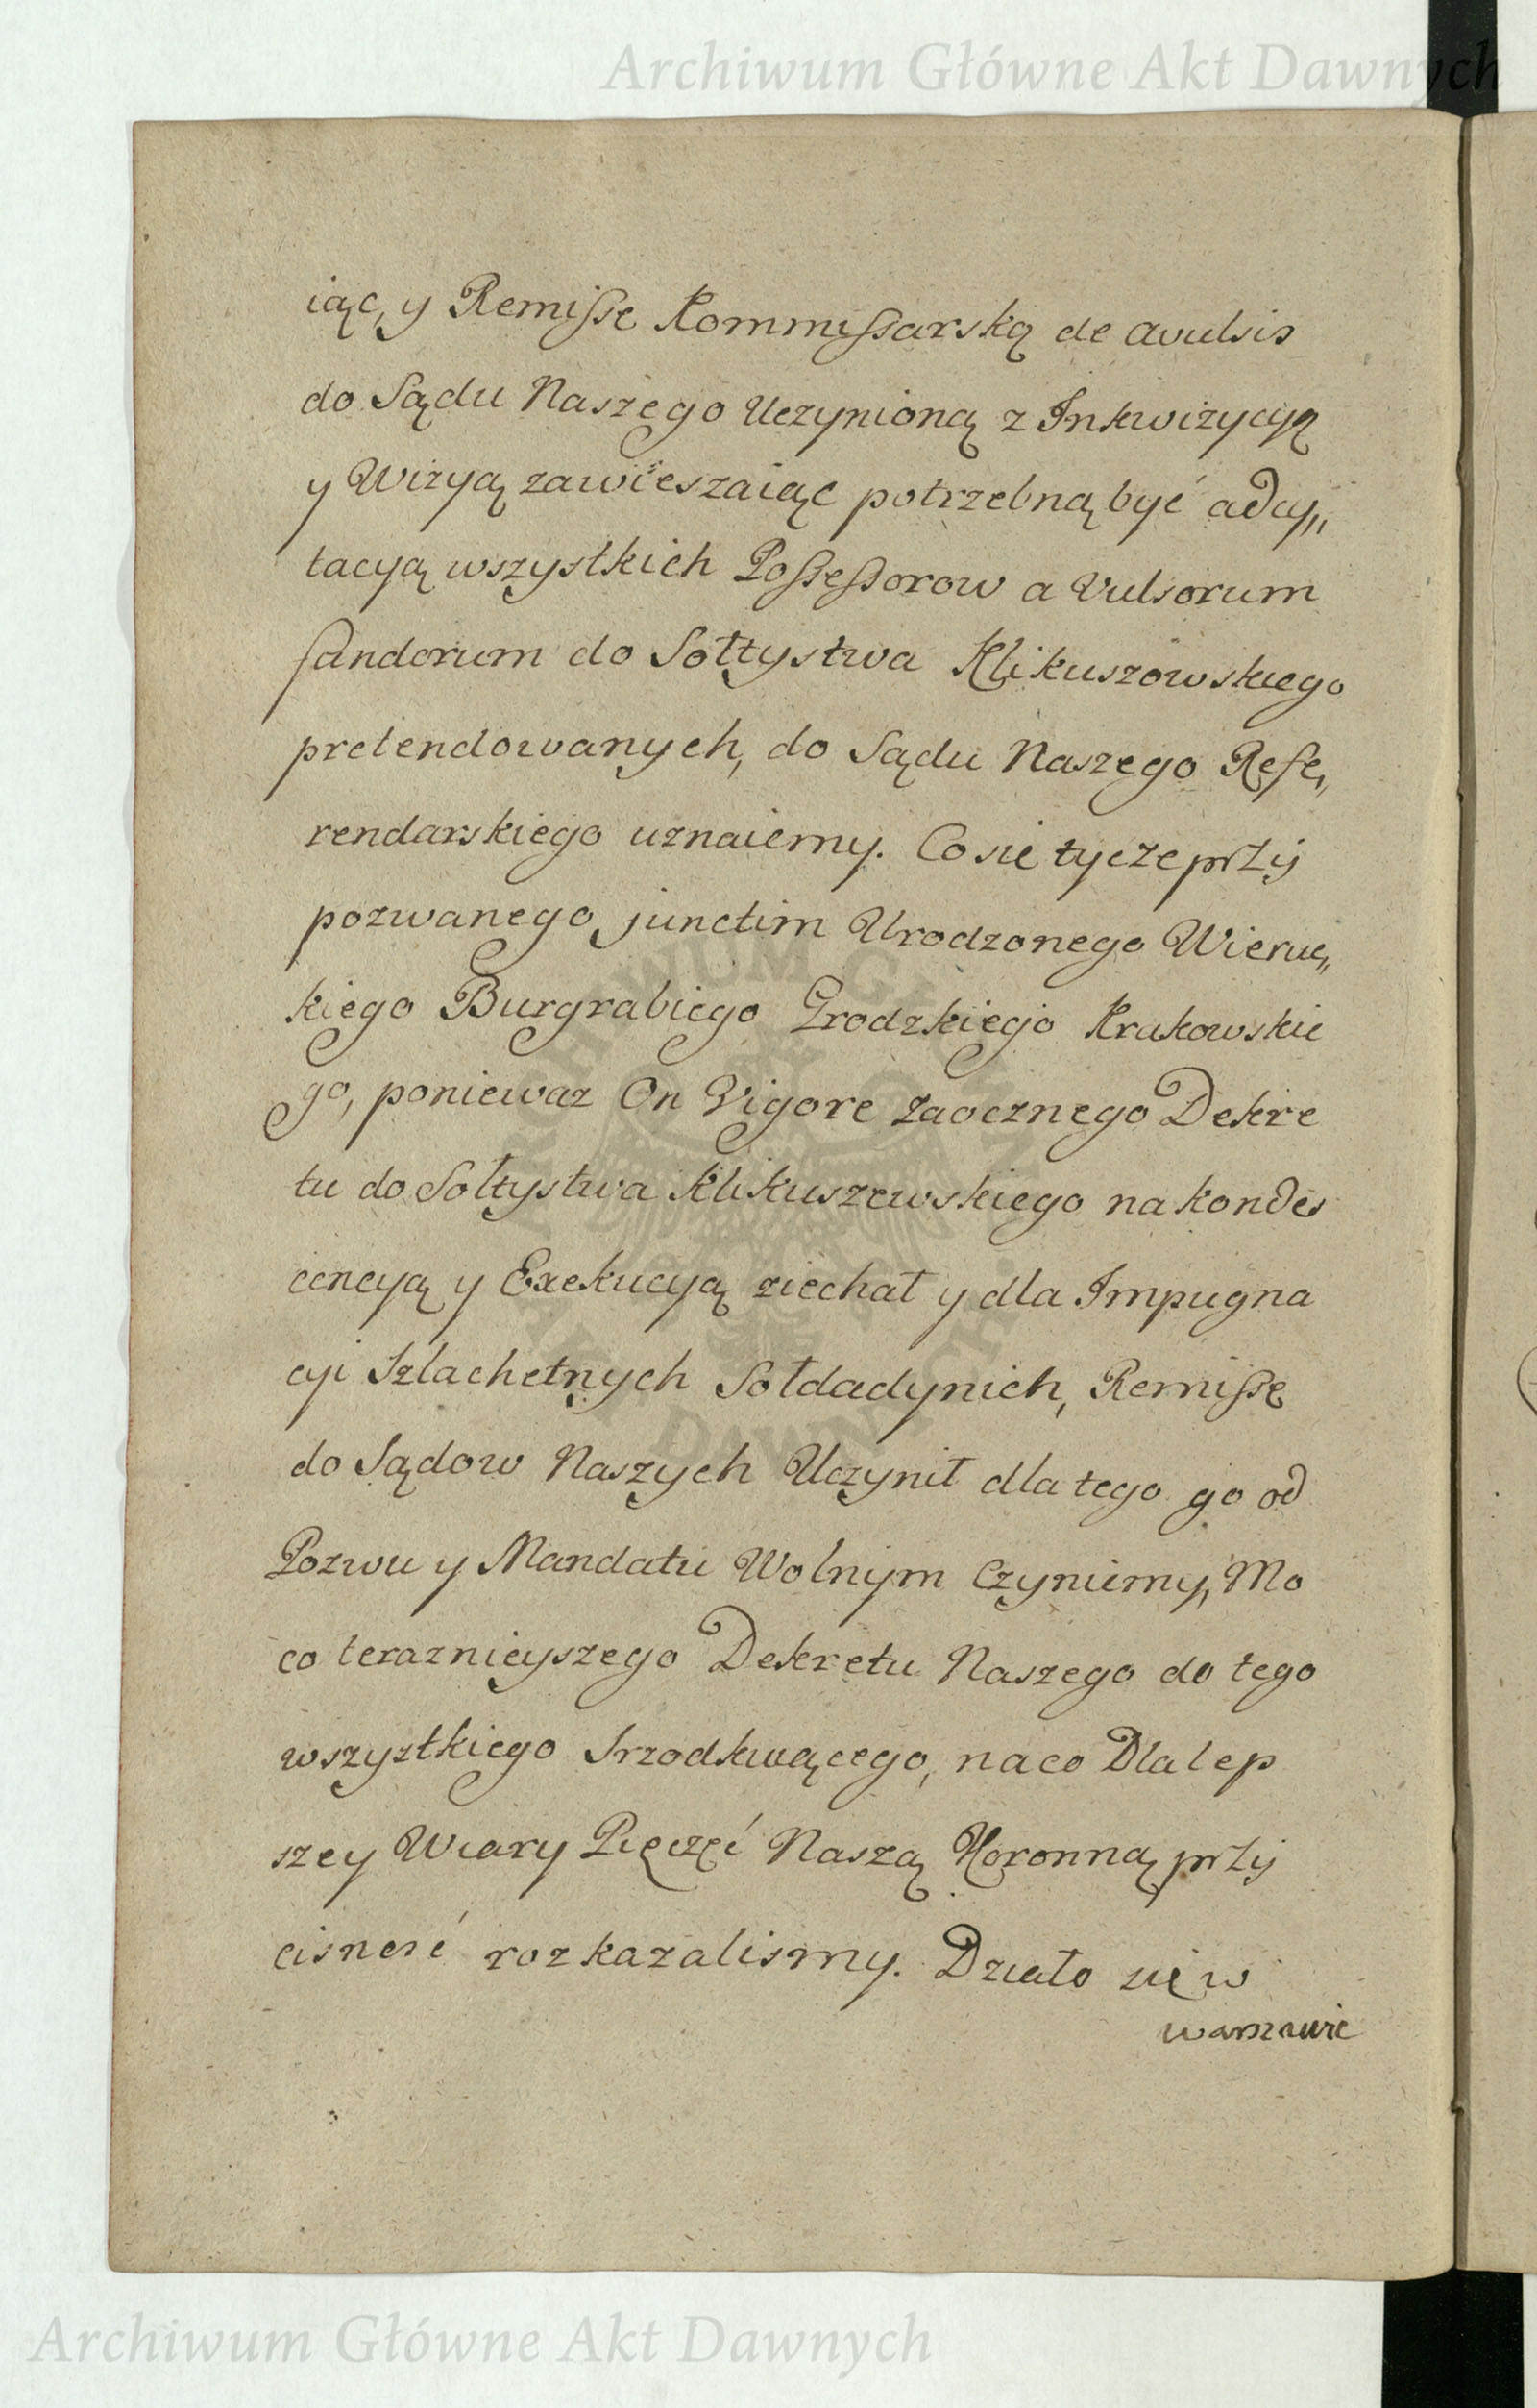 Archiwum Główne Akt Dawnych
iąc, y Remisse Kommissarską de avulsis
do Sądu Naszego Uczynioną z Inkwizycyą
y Wizyą zawieszaiąc potrzebną być adcy„
tacyą wszystkich Possessorow a Vulsorum
fundorum do Sołtystwa Klikuszowskiego
pretendowanych, do Sądu Naszego Refe„
rendarskiego uznaiemy. Co się tycze przy
pozwanego junctim Urodzonego Wieruc„
kiego Burgrabiego Grodzkiego Krakowskie
go, poniewaz On Vigore zaocznego Dekre
tu do Sołtystwa Klikuszewskiego na kondes
cencyą y Exekucyą ziechał y dla Impugna
cyi Szlachetnych Sołdadynich, Remissę
do Sądow Naszych Uczynił dla tego go od
Pozwu y Mandatu Wolnym Czyniemy, Mo
co teraznieyszego Dekretu Naszego do tego
wszystkiego Srzodkuącego, na co Dla lep
szey Wiary Pięczęć Naszą Koronną przy
cisnąć rozkazalismy. Działo się w
warszawie
Archiwum Główne Akt Dawnych